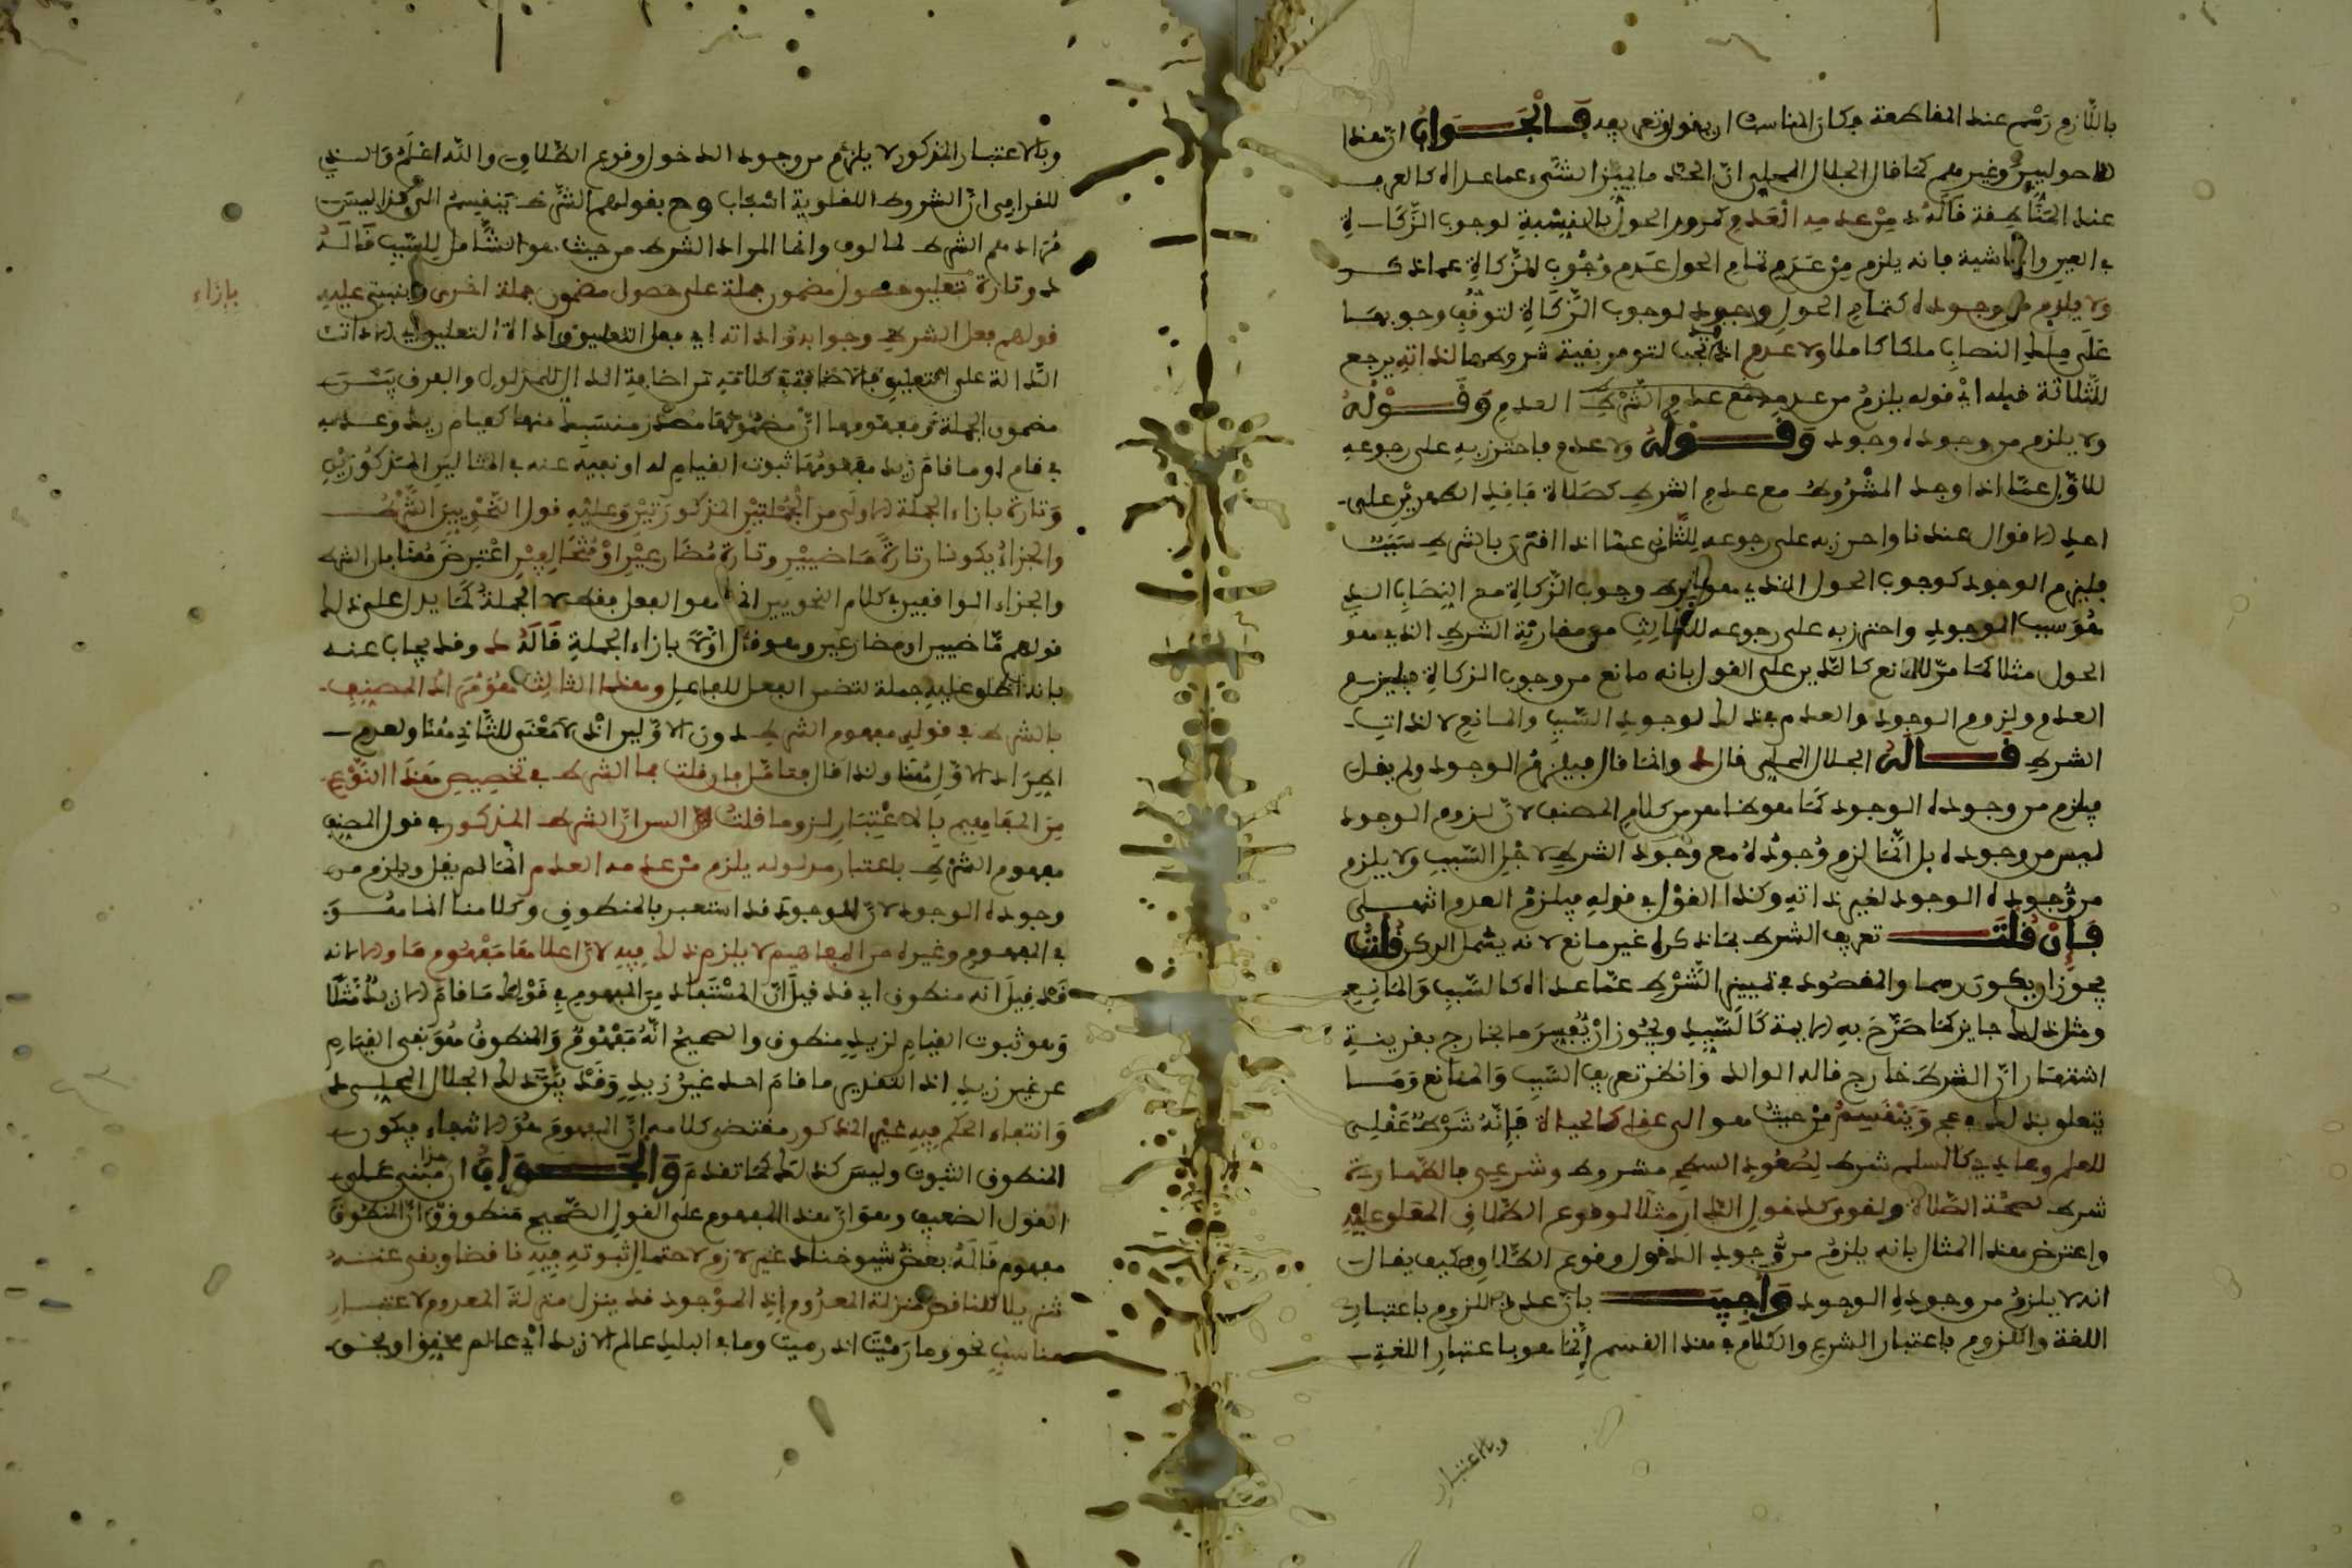 باللازم رسم عند المناطقة فكان المناسب ان يقول وتعريفه فَالْجَوَابُ ان هذا
الاصوليين وغيرهم كما قال الجلال المحلي ان الحد ما يميز الشيء عما عداه كالمعرف
عند المناطقة قَالَهُ د مِنْ عدمه الْعَدَم كمرور الحول بالنسبة لوجوب الزكاة
في العين والماشية فانه يلزم مِنْ عَدَم تمام الحول عَدَم وُجُوب الزكاة عما ذكر
ولا يلزم من وجوده كتمام الحول وجود لوجوب الزكاة لتوقف وجوبها
على ملك النصاب ملكا كاملا ولا عدم اذ تجب لتوفر بقية شروطها لذاته يرجع
للثلاثة قبله اي قوله يلزم من عدمه مع عدم الشرط العدم وَقَوْلُهُ
ولا يلزم من وجوده وجود وَقَوْلُهُ ولا عدم فاحترز به على رجوعه
للاول عما اذا وجد المشْرُوط مع عدم الشرط كصلاة فاقد الطهرين على
احد الاقوال عندنا واحترز به على رجوعه للثاني عما اذا اقترن بالشرط سبب
فيلزم الوجود كوجوب الحول الذي هو شرط وجوب الزكاة مع النصاب الذي
هُوَ سبب الوجود واحترز به على رجوعه للثالث من مقارنة الشرط الذي هو
الحول مثلا كما مر للمانع كالدين على القول بانه مانع من وجوب الزكاة فيلزم
العدم ولزوم الوجود والعدم في ذلك لوجود السبب والمانع لا لذات
الشرط قَالَهُ الجلال المحلي قال د وانما قال فيلزم الوجود ولم يقل
فيلزم من وجوده الوجود كما هو ظاهر من كلام المصنف لان لزوم الوجود
ليس من وجوده بل انما لزم وُجُودُهُ مع وجود الشرط لاجل السبب ولا يلزم
من وُجُوده الوجود لغير ذاته وكذا القول في قوله فيلزم العدم انتهى
فَإِنْ قُلْتَ تعريف الشرط بما ذكره غير مانع لانه يشمل الركن قُلْتُ
يجوز ان يكون رسما والمقصود في تمييز الشَّرْط عما عداه كالسبب والمانع
ومثل ذلك جايز كما صَرَّحَ به الايمة كالسيد ويجُوز ان يُفَسِّرَ ما بخارج بقرينة
اشتهار ان الشرط خارج قاله الوالد وَانظر تعريف السبب وَالمانع وَمَا
يتعلق بذلك في عج وَيَنْقَسِمُ مِنْ حيث هو الى عقلي كالحياة فَإِنَّهُ شَرْطٌ عَقْلِي
للعلم وعادي كالسلم شرط لِصُعُود السطح مشروط وشرعي كالطهارة
شرط لصحة الصلاة ولغوي كدخول الدار مثلا لوقوع الطلاق المعلو عليه
واعترض هذا المثال بانه يلزم من وُجود الدخول وقوع الطلاق فكيف يقال
انه لا يلزم من وجوده الوجود وَأُجِيبَ بان عدم اللزوم باعتبار
اللغة واللزوم باعتبار الشرع والكلام في هذا القسم إنما هو باعتبار اللغة
وبالاعتبار
وبالاعتبار المذكور لا يلزم من وجود الدخول وقوع الطلاق والله اعلم وَالذي
للقرافي ان الشروط اللغوية اسباب وح بقولهم الشرط يَنقسم الى كذا ليس
مُرَادهم الشرط المالوف وانما المراد الشرط من حيث هو الشامل للسبب قَالَهُ
د وتارة تعليق حصول مضمون جملة على حصول مضمون جملة اخرى وينبني عليه
قولهم فعل الشرط وجوابه واداته اي فعل التعليق واداة التعليق اي الاداة
الدالة على التعليق فالاضافة في كلامه من اضافة الدال للمدلول والفرق بين
مضمون الجملة ومفهومها ان مَضْمُونهَا مصْدَر منسبك منها كقيام زيد وعدمه
في قام او ما قام زيد مفهومها ثبوت القيام له او نفيه عنه في المثالين المذكورين
وَتارة بازاء الجملة الاولى من الْجُمْلتين المذكورتين وَعليه قول النحويين الشرط
والجزاء يكونان تارة مَاضيين وتارة مُضَارعيْن اوْ مُتْخَالِفين اعْتِرض مُقابل الشرط
والجزاء الواقعين في كلام النحويين انما هو الفعل فقط لا الجملة كما يدل على ذلك
قولهم مّاضيين او مضارعين وهو قال اوَّلاً بازاء الجملة قَالَهُ د وقد يجاب عنه
بانه اطلق عليه جملة لتضمن الفعل للفاعل وهذا الثالث هُوَ مُرَاد المصنف
بالشرط في قولي مفهوم الشرط دون الاولين اذ لا مَعْنَى للثاني هنا ولعدم
ايراد الاول هُنا ولذا قال فتامل فان قلت مما الشرط في تخصيص هذا النوع
مِن المفاهيم بالاعْتِبَار لزوما قلت السر ان الشرط المذكور في قول المصنف
مفهوم الشرط باعتبار مدلوله يلزم مِنْ عدمه العدم انما لم يقل ويلزم من
وجوده الوجود لان الوجود قد استعير بالمنطوق وكلامنا انما هُوَ
في المفهوم وغيره من المفاهيم لا يلزم ذلك فيه لان اعلاها مَفْهُوم مَا والا انه
قَدْ قِيلَ انه منطوق اي قد قيل ان المسْتَفاد من المفهوم في قَوْلِكَ مَا قَامَ الا زيدٌ مَثلًا
وَهو ثبوت القيام لزيد منطوق والصحيح انَّهُ مَفْهُوم وَالمنطوق هُوَ نفي القيام
عن غير زيد اذ التقدير ما قَامَ احد غيرُ زيدٍ وَقَدْ يَرِد ذلك الجلال المحلي د
وَانتفاء الحكم فيه غير المذكور مقتضى كلامه ان المفهوم هُوَ الانتفاء فيكون
المنطوق الثبوت وليس كذلك كما تقدمَ وَالْجَوَابُ ان هذا مبني على
القول الضعيف وهو ان هذا المفهوم على القول الصحيح منطوق وَان المنطوق
مفهوم قَالَهُ بعض شيوخنا د غير لازم لاحتمال ثبوته فيه ناقضا ونفي عنه
تنزيلا للناقص منزلة المعدُوم إذ الموجود قد ينزل منزلة المعدوم لاعتبار
مناسب نحو وما رَمَيْتَ اذ رميت وما في البلد عالم الا زيد ايْ عالم محقق او نحو
بإزاء